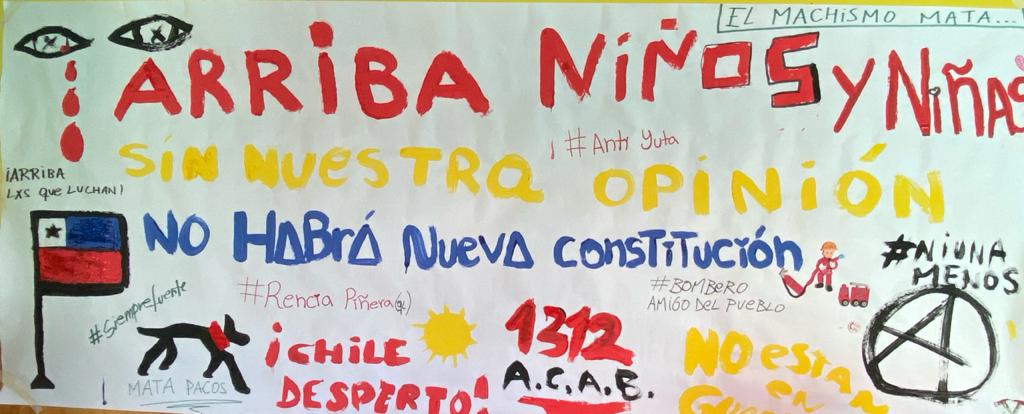 EL MACHISMO MATA...
¡ARRIBA NIÑOS Y NIÑAS
#Anti Yuta
SIN NUESTRA OPINIÓN
¡ARRIBA
LXS QUE LUCHAN!
NO HABRÁ NUEVA CONSTITUCIÓN
#NIUNA
MENOS
#Siemprefuerte
#Rencia Piñera
#BOMBERO
AMIGO DEL PUEBLO
MATA PACOS
¡CHILE
DESPERTO!
1312
A.C.A.B.
NO ESTAN
EN